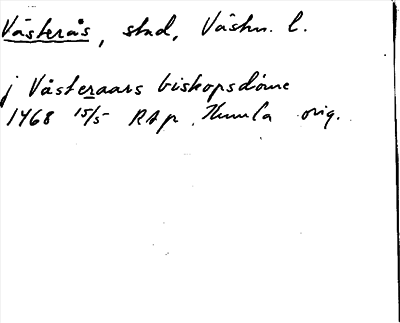 Västerås, stad, Västm. l.
j Västeraars biskopsdöme
1468 15/5 RAp. Kumla orig.